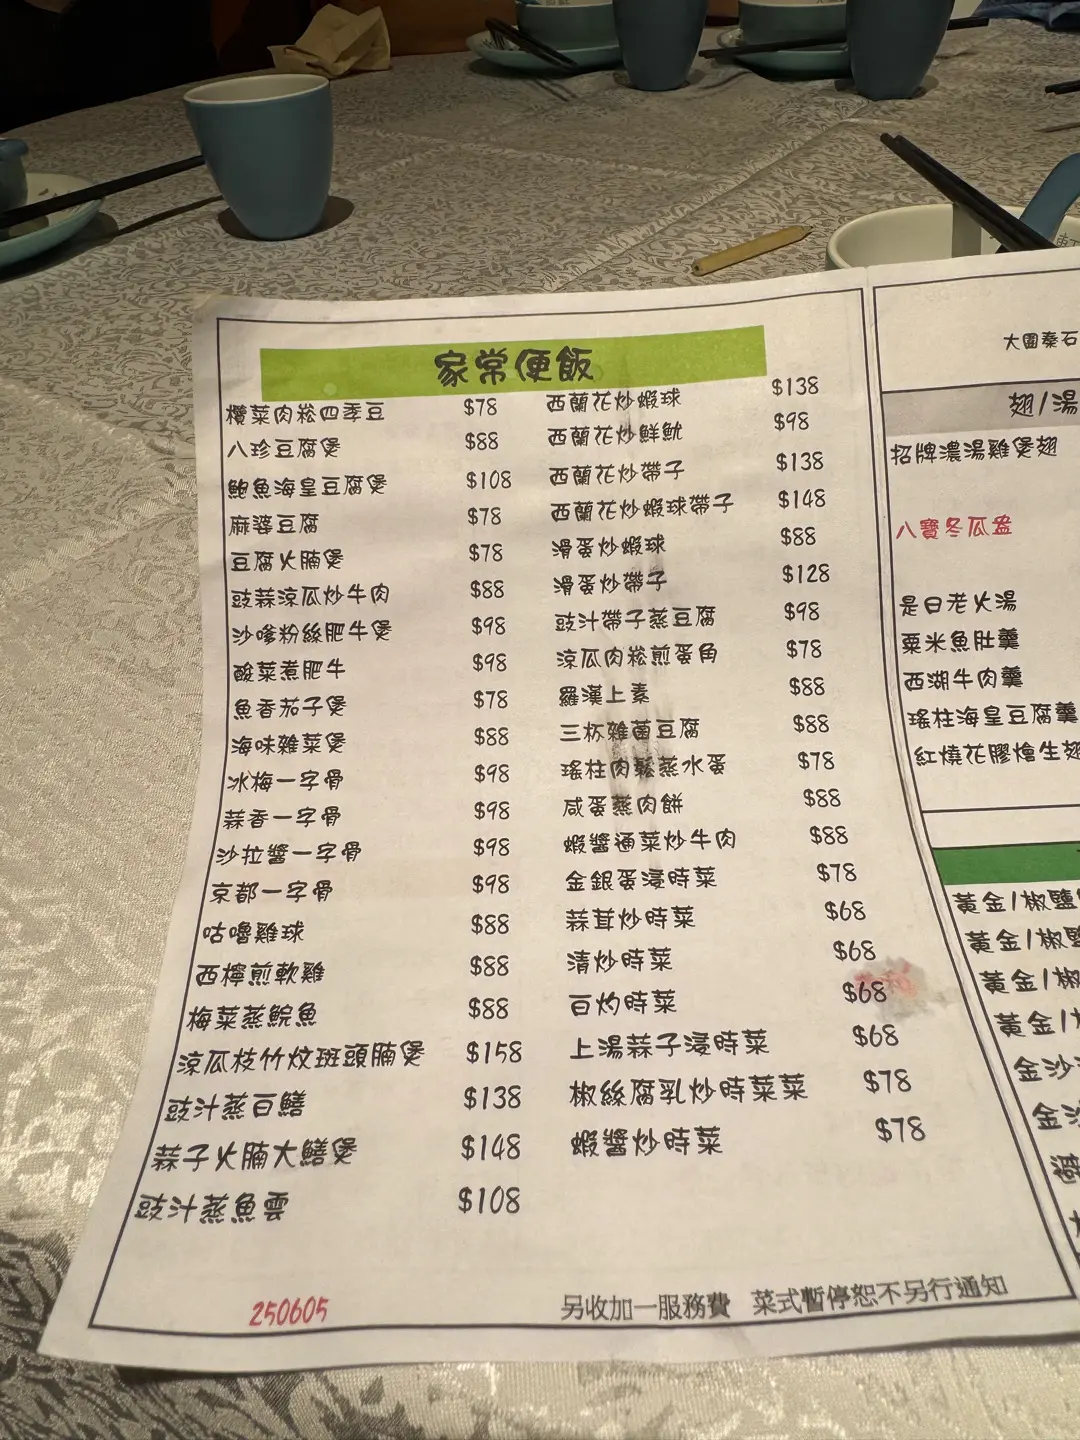 家常便飯
欖菜肉崧四季豆 $78
八珍豆腐煲 $88
鮑魚海皇豆腐煲 $108
麻婆豆腐 $78
豆腐火腩煲 $78
豉蒜涼瓜炒牛肉 $88
沙嗲粉絲肥牛煲 $98
酸菜煮肥牛 $98
魚香茄子煲 $78
海味雜菜煲 $88
冰梅一字骨 $98
蒜香一字骨 $98
沙拉醬一字骨 $98
京都一字骨 $98
咕嚕雞球 $88
西檸煎軟雞 $88
梅菜蒸鯇魚 $88
涼瓜枝竹炆斑頭腩煲 $158
豉汁蒸白鱔 $138
蒜子火腩大鱔煲 $148
豉汁蒸魚雲 $108
西蘭花炒蝦球 $138
西蘭花炒鮮魷 $98
西蘭花炒帶子 $138
西蘭花炒蝦球帶子 $148
滑蛋炒蝦球 $88
滑蛋炒帶子 $128
豉汁帶子蒸豆腐 $98
涼瓜肉崧煎蛋角 $78
羅漢上素 $88
三杯雜菌豆腐 $88
瑤柱肉鬆蒸水蛋 $78
咸蛋蒸肉餅 $88
蝦醬通菜炒牛肉 $88
金銀蛋浸時菜 $78
蒜茸炒時菜 $68
清炒時菜 $68
白灼時菜 $68
上湯蒜子浸時菜 $68
椒絲腐乳炒時菜菜 $78
蝦醬炒時菜 $78
250605
另收加一服務費 菜式暫停恕不另行通知
大圍秦石
翅/湯
招牌濃湯雞煲翅
八寶冬瓜盅
是日老火湯
粟米魚肚羹
西湖牛肉羹
瑤柱海皇豆腐羹
紅燒花膠燴生翅
黃金/椒鹽
黃金/椒鹽
黃金/椒
黃金/
金沙
金沙
避